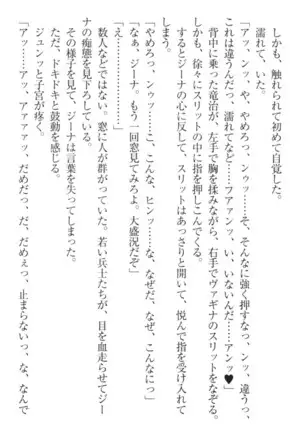 しかも、触れられて初めて自覚した。
濡れて、いた。
「アンッ、や、やめろっ、ンッ……そ、そんなに強く押すなっ、ンッ、違うっ、
これは違うんだっ、濡れてなど……フアァンッ、い、いないんだ……アンッ♥
背中に乗った竜治が、左手で胸を揉みながら、右手でヴァギナのスリットをなぞる。
しかも、徐々にスリットの中に指を押しこんでくる。
するとジーナの心に反して、スリットはあっさりと開いて、悦んで指を受け入れて
「やめろっ、ンッ……こ、こんな、ヒンッ……な、なぜだ、なぜ、こんなにっ」
「なぁ、ジーナ。もう一回窓見てみろよ。大盛況だぞ」
「え……」
数人などではない。窓に人が群がっていた。若い兵士たちが、目を血走らせてジー
ナの痴態を見下ろしている。
その様子を見て、ジーナは言葉を失ってしまった。
ただ、ドキドキと鼓動を感じる。
ジュンッと子宮が疼く。
「アッ……アッ、アァァッ、だめだっ、だ、だめぇっ、止まらないっ、な、なんで